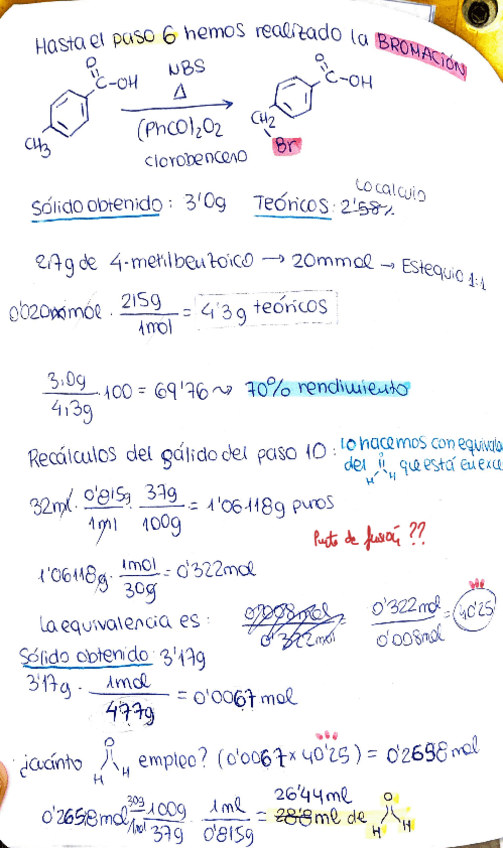 Hasta el paso 6 hemos realizado la BROMACIÓN
O
C-OH
CH3
NBS
Δ
(PhCO)2O2
clorobenceno
O
C-OH
CH2
Br
Sólido obtenido: 3'0g Teóricos: 2'58% lo calculo
2,7g de 4-metilbenzoico → 20mmol → Estequio 1:1
0'020 mol · 215g / 1mol = 4'3g teóricos
3,0g / 4,3g · 100 = 69'76 ⇝ 70% rendimiento
Recálculos del gálido del paso 10: lo hacemos con equivala
del H H O que está en exce
32ml · 0'815g / 1ml · 37g / 100g = 1'06118g puros
Punto de fusión ??
1'06118g · 1mol / 30g = 0'322mol
La equivalencia es: 0'008mol / 0'322mol 0'322mol / 0'008mol = 40'25
Sólido obtenido: 3'17g
3'17g · 1mol / 477g = 0'0067 mol
¿cuánto O H H empleo? (0'0067 x 40'25) = 0'2698 mol
0'2698mol · 30g / 1mol · 100g / 37g · 1ml / 0'815g = 26'44ml
28'8 ml de O H H